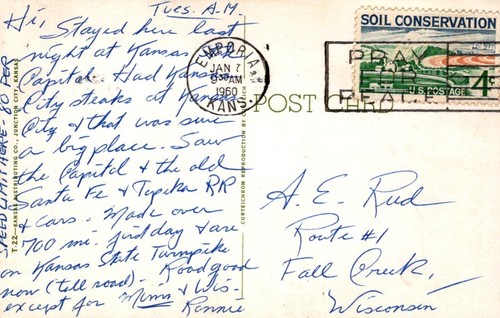 Tues. A.M
Hi,
Stayed here last
night at Kansas
Capitol. Had Kansas
City steaks at Kansas
City & that was sure
a big place. Saw
the Capitol & the old
Santa Fe & Topeka RR
& cars. Made over
700 mi. first day & are
on Kansas State Turnpike
now (toll road). Road good
except for Minn & Wis-
Ronnie
SPEED LIMIT HERE-80 PER
T.22—KANSAS DISTRIBUTING CO., JUNCTION CITY, KANSAS
CURTEICHCOLOR REPRODUCTION BY CURTEICH
POST CARD
EMPORIA
JAN 7
AM
1960
KANS.
PRAY
FOR
PEACE
SOIL CONSERVATION
4¢
U.S. POSTAGE
A. E. Rud
Route #1
Fall Creek,
Wisconsin